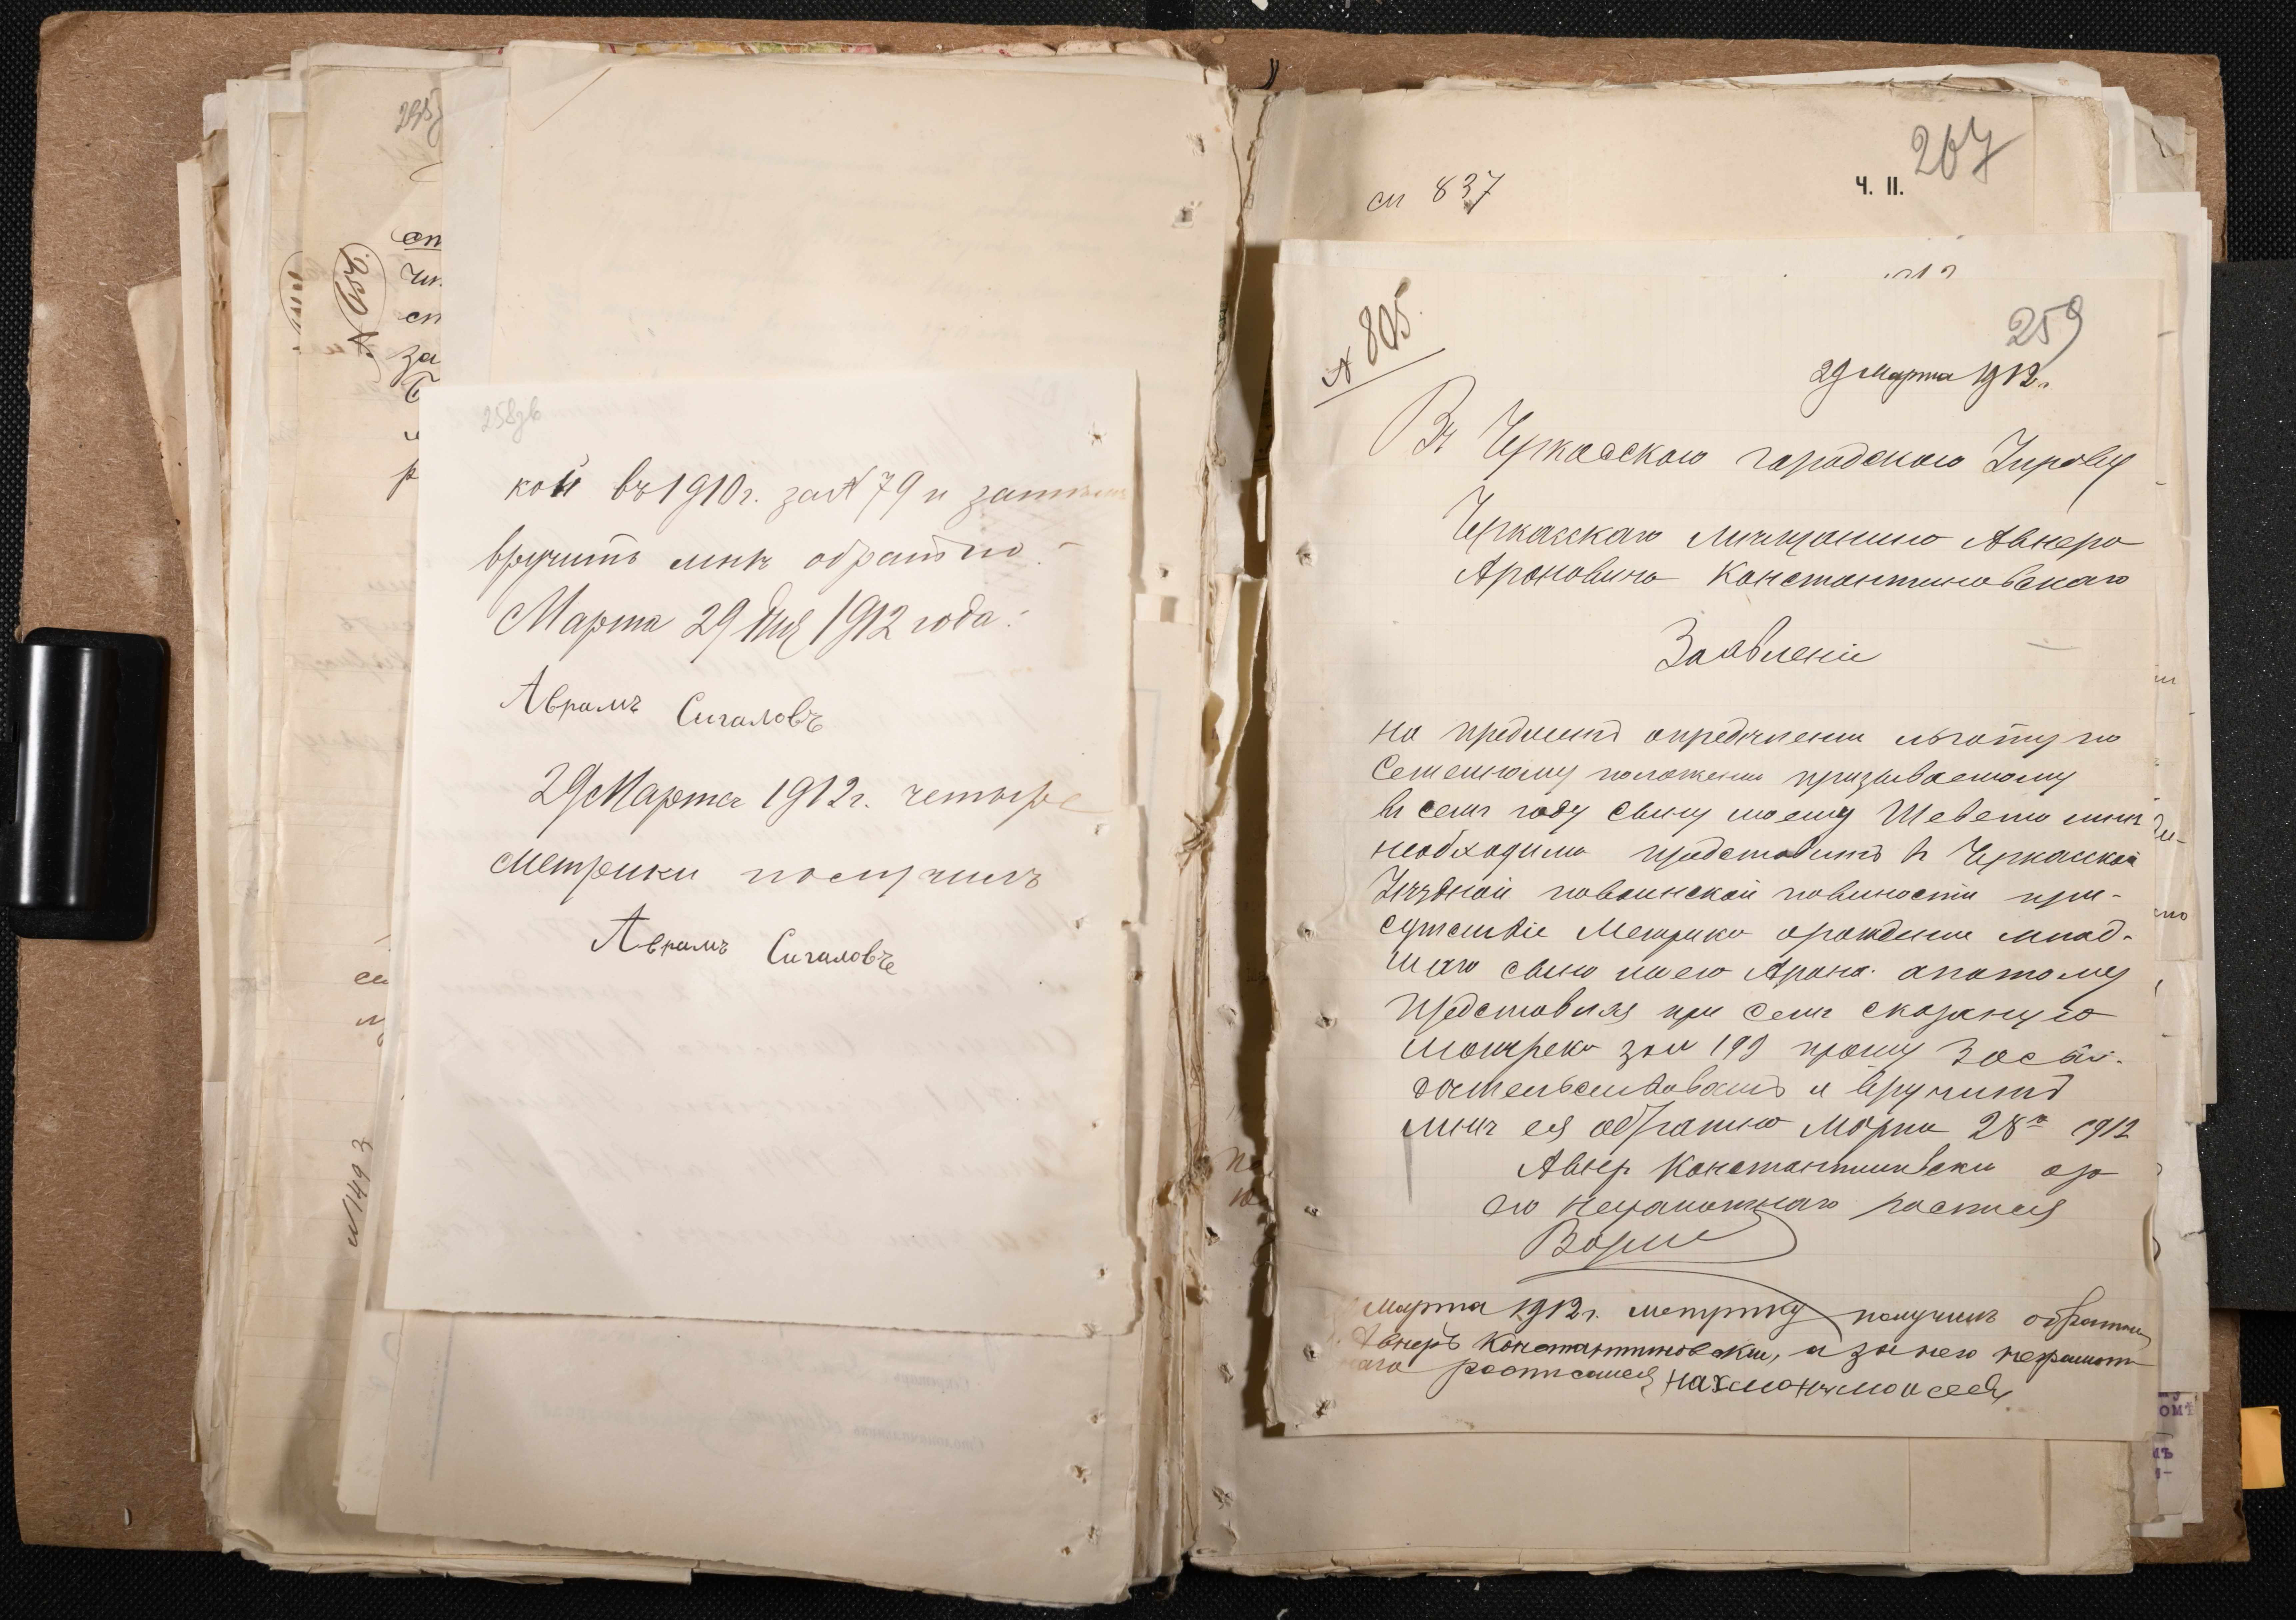 258зв
кой въ 1910 г. за № 79 и затѣмъ
вручить мнѣ обратно.
Марта 29 дня 1912 года.
Аврамъ Сигаловъ
29 Марта 1912 г. четыре
метрики получилъ
Аврамъ Сигаловъ
№ 1493
см 837
Ч. II.
267
№ 805.
259
29 Марта 1912 г.
Въ Черкасскою городскою Управу
Черкасскаго мещанино Авнера
Ароновича Константиновскаго
Заявление
на предметъ определении льготу по
Семейному положению призываемому
в семъ году сыну моему Шевелю мнѣ
необходимо представить в Черкасской
Уездной повоинской повиности при-
сутствiе Метрику орождении млад-
шаго сыно моего Арона. апотому
представляя при семъ сказаную
метреку за № 199 прошу Засви-
детельствовать и вручить
мнѣ ея обратно Марта 28 го 1912
Авнер Константиновски
его неграмотнаго росписуя
Марта 1912 г. метрику получилъ обратно
Авнеръ Константиновски, а за него неграмот
наго росписался Нахманъ Моисеев